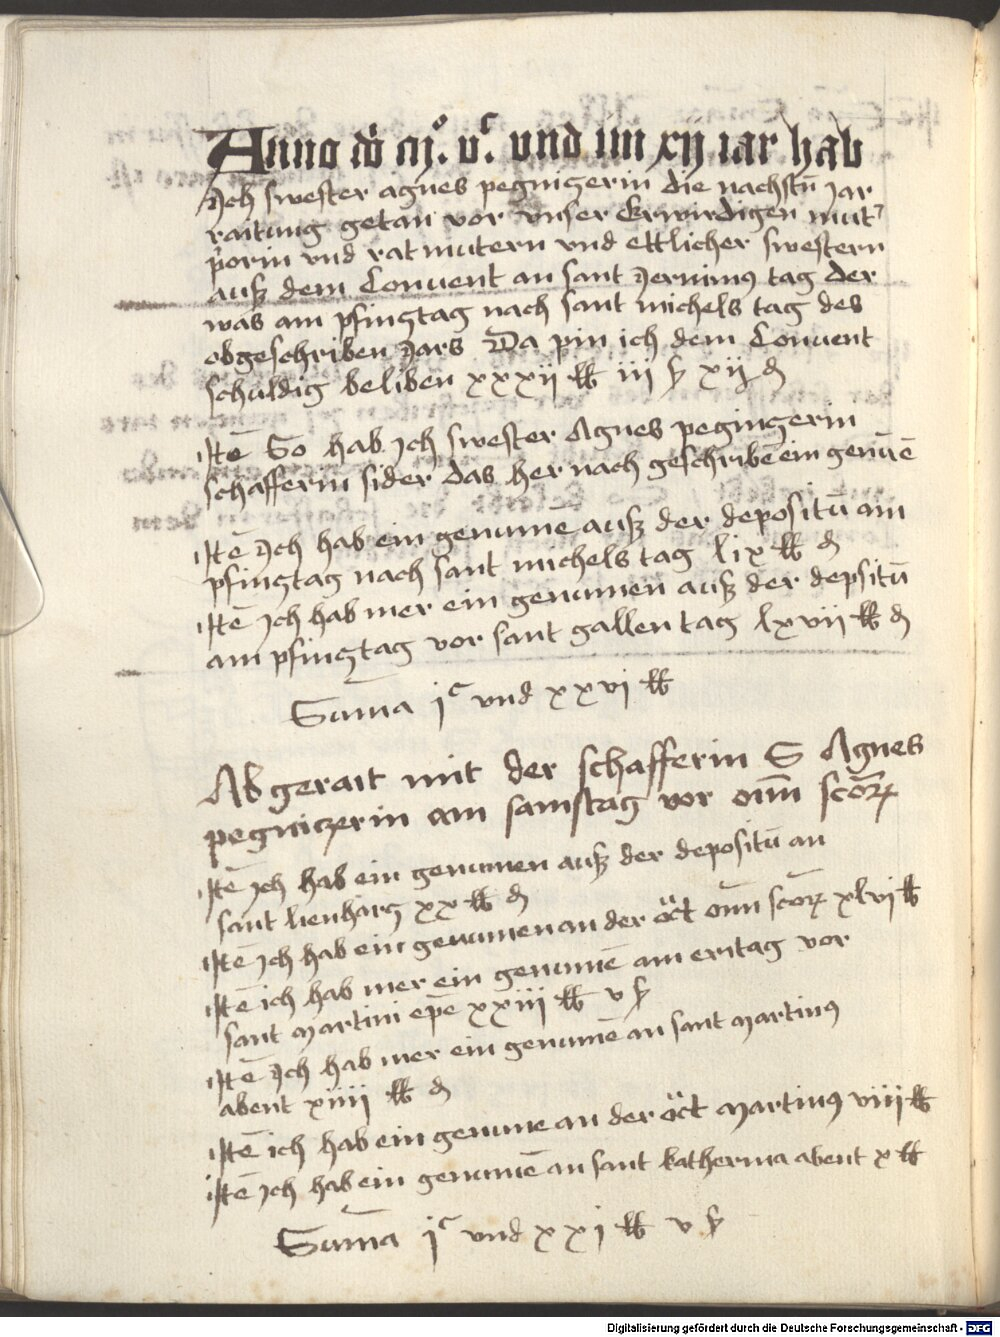 Anno dn̄ mͦ. vͨ. vnd im xij iar hab
Jch swester agnes pegniczerin die nachstn̄ Jar
raitung getan vor vnser Erwirdigen mut'
p'orin vnd ratmutern vnd ettlicher swestern
auß dem Conuent an sant Jeronimus tag der
was am pfincztag nach sant michels tag des
obgeschriben Jars Da pin ich dem Conuent
schuldig beliben xxxij ℔ iij ß xij ₰
Jtē So hab Jch swester Agnes peginczerin
schafferin sider das her nach geschribē ein genūē
Jtē Jch hab ein genumē auß der depositū am
pfincztag nach sant michels tag lix ℔ ₰
Jtē Jch hab mer ein genumen auß der depsitū
am pfincztag vor sant gallen tag lxvij ℔ ₰
Sum̄a jͨ vnd xxvj ℔
Abgerait mit der schafferin S Agnes
pegniczerin am samstag vor om̄ scōꝝ
Jtē Jch hab ein genumen auß der depositū an
sant lienharcz xx ℔ ₰
Jtē Jch hab ein genumen an der oct om̄ scōꝝ xlvj ℔
Jtē ich hab mer ein genumē am eritag vor
sant martini epē xxiij ℔ v ß
Jtē Jch hab mer ein genumē an sant martinus
abent xiiij ℔ ₰
Jtē ich hab ein genume an der oct martinus viij ℔
Jtē Jch hab ein genumē an sant katherina abent x ℔
Sum̄a jͨ vnd xxj ℔ v ß
Digitalisierung gefördert durch die Deutsche Forschungsgemeinschaft - DFG